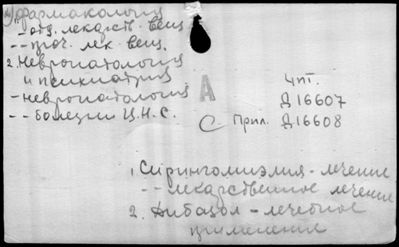 1) Фармакология
- отд. лекарств. вещ.
-- проч. лек. вещ.
2. Невропатология
и психиатрия
- невропатология
-- болезни Ц.Н.С.
А
чит.
Д16607
С. Прил. Д16608
1. Сирингомиэлия - лечение
-- лекарственное лечение
2. Дибазол - лечебное
применение